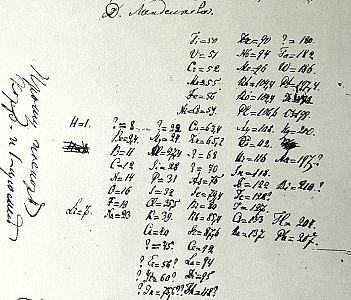 Д. Менделеева.
Ti=50 Zr=90 ?=180.
V=51 Nb=94 Ta=182.
Cr=52 Mo=96 W=186.
Mn=55 Rh=104,4 Pt=197,4
Fe=56 Ru=104,4
Ni=Co=59 Pl=106,6 Os=199.
H=1. ?=8 ?=22 Cu=63,4 Ag=108 Hg=200.
Be=9,4 Mg=24 Zn=65,2 Cd=112
B=11 Al=27,4 ?=68 Ur=116 Au=197?
C=12 Si=28 ?=70 Sn=118
N=14 P=31 As=75 Sb=122 Bi=210?
O=16 S=32 Se=79,4 Te=128?
F=19 Cl=35,5 Br=80 I=127
Li=7. Na=23 K=39 Rb=85,4 Cs=133 Tl=204
Ca=40 Sr=87,6 Ba=137 Pb=207.
?=45 Ce=92
?Er=56? La=94
?Yt=60? Di=95
?In=75,6? Th=118?